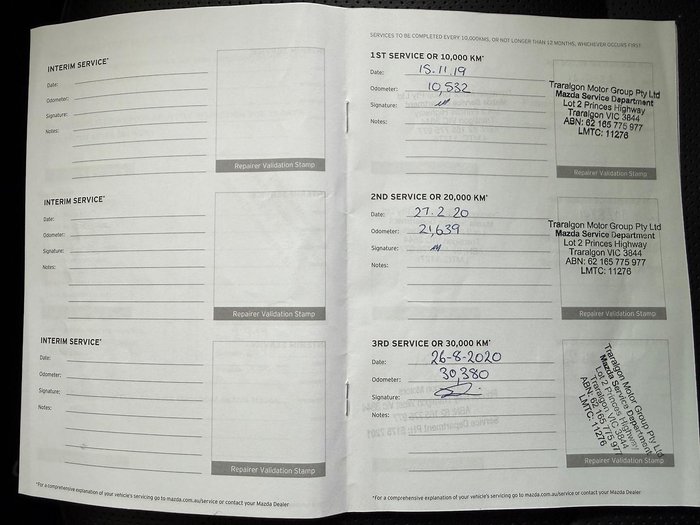 INTERIM SERVICE*
Date:
Odometer:
Signature:
Notes:
Repairer Validation Stamp
INTERIM SERVICE*
Date:
Odometer:
Signature:
Notes:
Repairer Validation Stamp
INTERIM SERVICE*
Date:
Odometer:
Signature:
Notes:
Repairer Validation Stamp
*For a comprehensive explanation of your vehicle's servicing go to mazda.com.au/service or contact your Mazda Dealer
SERVICES TO BE COMPLETED EVERY 10,000KMS, OR NOT LONGER THAN 12 MONTHS, WHICHEVER OCCURS FIRST
1ST SERVICE OR 10,000 KM*
Date: 15.11.19
Odometer: 10,532
Signature:
Notes:
Traralgon Motor Group Pty Ltd
Mazda Service Department
Lot 2 Princes Highway
Traralgon VIC 3844
ABN: 62 165 775 977
LMTC: 11276
Repairer Validation Stamp
2ND SERVICE OR 20,000 KM*
Date: 27.2.20
Odometer: 21,639
Signature:
Notes:
Traralgon Motor Group Pty Ltd
Mazda Service Department
Lot 2 Princes Highway
Traralgon VIC 3844
ABN: 62 165 775 977
LMTC: 11276
Repairer Validation Stamp
3RD SERVICE OR 30,000 KM*
Date: 26-8-2020
Odometer: 30,380
Signature:
Notes:
Traralgon Motor Group Pty Ltd
Mazda Service Department
Lot 2 Princes Highway
Traralgon VIC 3844
ABN: 62 165 775 977
LMTC: 11276
Repairer Validation Stamp
*For a comprehensive explanation of your vehicle's servicing go to mazda.com.au/service or contact your Mazda Dealer